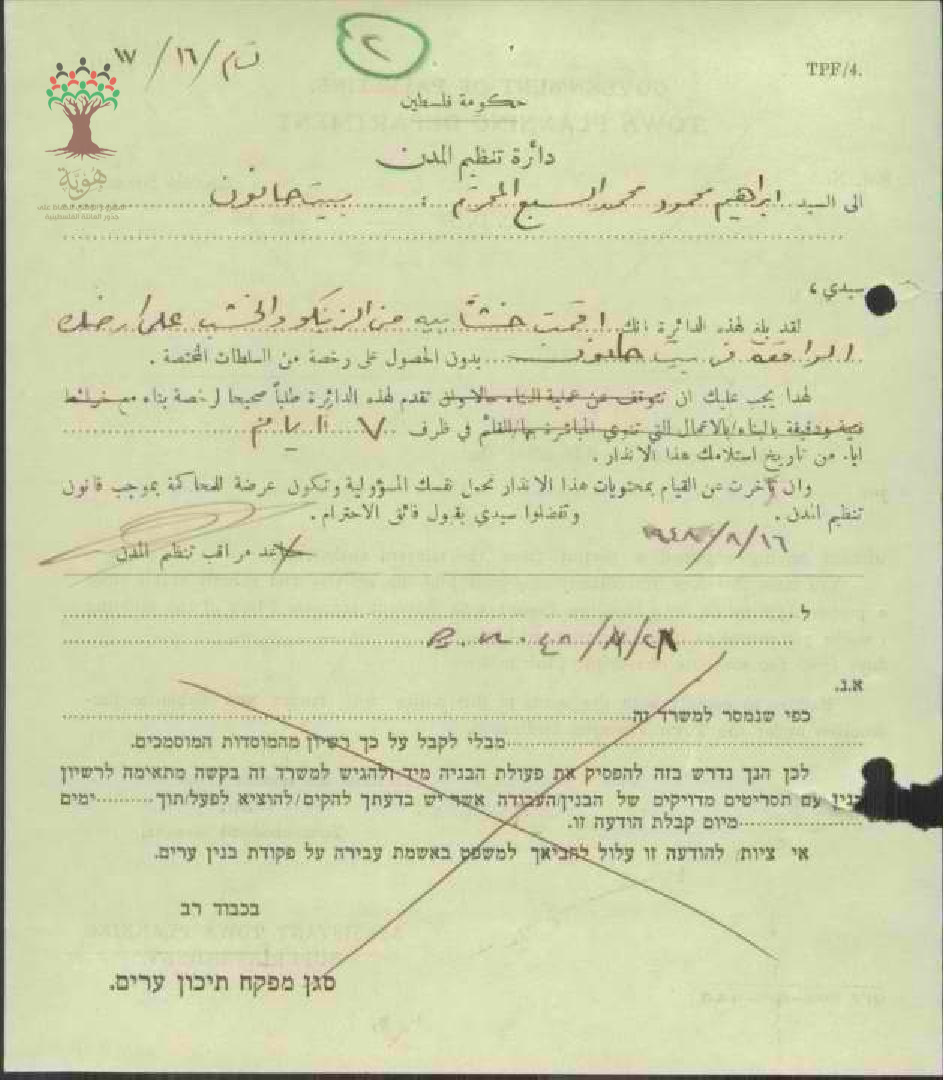 TPF/4.
ت م / ١٦ / W
٢
حكومة فلسطين
دائرة تنظيم المدن
هَوِيَّة
جذور العائلة الفلسطينية
الى السيد ابراهيم محمود محمد السبع المحترم : بيت حانون
سيدي ،
لقد بلغ لهذه الدائرة انك اقمت خشاً بيه من الزينكو والخشب على ارضك
الواقعة في بيت حانون بدون الحصول على رخصة من السلطات المختصة .
لهذا يجب عليك ان تتوقف عن عملية البناء حالا وان تقدم لهذه الدائرة طلباً صحيحا لرخصة بناء مع خرائط
فنية ودقيقة بالبناء/بالاعمال التي تنوي المباشرة بها/للقلم في ظرف ٧ ايام
ايا. من تاريخ استلامك هذا الانذار .
وان تأخرت عن القيام بمحتويات هذا الانذار تحمل نفسك المسؤولية وتكون عرضة للمحاكمة بموجب قانون
تنظيم المدن . وتفضلوا سيدي بقبول فائق الاحترام .
١٦/٨/٩٤٨
مراقب تنظيم المدن
ל
א.נ.
כפי שנמסר למשרד זה
מבלי לקבל על כך רשיון מהמוסדות המוסמכים.
לכן הנך נדרש בזה להפסיק את פעולת הבניה מיד ולהגיש למשרד זה בקשה מתאימה לרשיון
בנין עם תסריטים מדויקים של הבנין/העבודה אשר יש בדעתך להקים/להוציא לפעל/תוך ימים
מיום קבלת הודעה זו.
אי ציות להודעה זו עלול להביאך למשפט באשמת עבירה על פקודת בנין ערים.
בכבוד רב
סגן מפקח תיכון ערים.